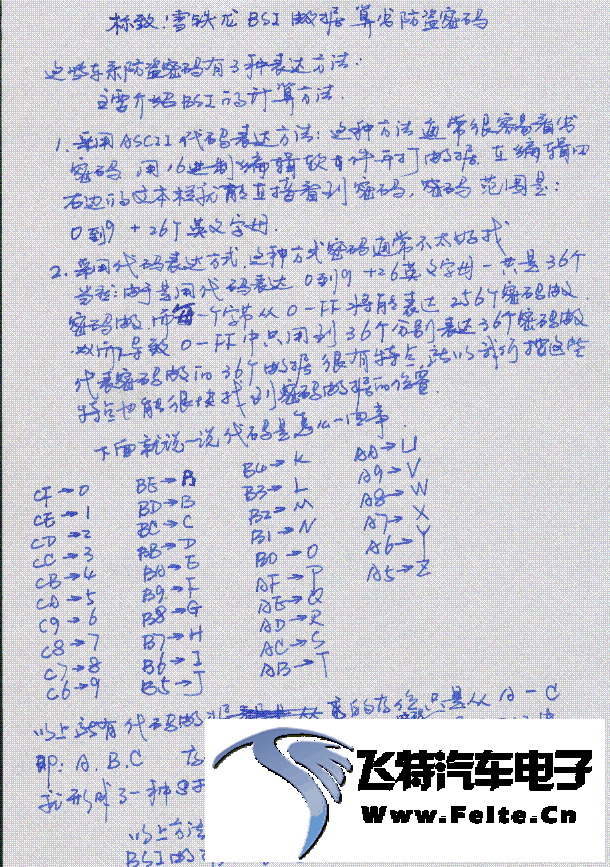 标致!雪铁龙 BSI 数据算出防盗密码
这些车系防盗密码有3种表达方法:
主要介绍BSI的计算方法.
1. 采用ASCII代码表达方法:这种方法通常很容易看出
密码 用16进制编辑软件打开数据. 在编辑四
右边的文本栏就能直接看到密码, 密码范围是:
0到9 + 26个英文字母.
2. 采用代码表达方式. 这种方式密码通常不太好找
由于是用代码表达 0到9 +26英文字母一共是36个
密码数, 而每一个字节从 0-FF 将能表达 256个密码数.
所以导致 0-FF 中只用到36个分别表达36个密码数
代表密码数的36个数据很有特点, 所以我们按这些
特点也能很快找到密码数据的位置.
下面就说一说代码是怎么一回事
CF→0 BE→A B4→K AA→U
CE→1 BD→B B3→L A9→V
CD→2 BC→C B2→M A8→W
CC→3 BB→D B1→N A7→X
CB→4 BA→E B0→O A6→Y
CA→5 B9→F AF→P A5→Z
C9→6 B8→G AE→Q
C8→7 B7→H AD→R
C7→8 B6→I AC→S
C6→9 B5→J AB→T
以上所有代码数 的存值 只是从 A-C
即: A. B. C 存
就形成了一种
以上方法
BSI 数
飞特汽车电子
Www.Feite.Cn